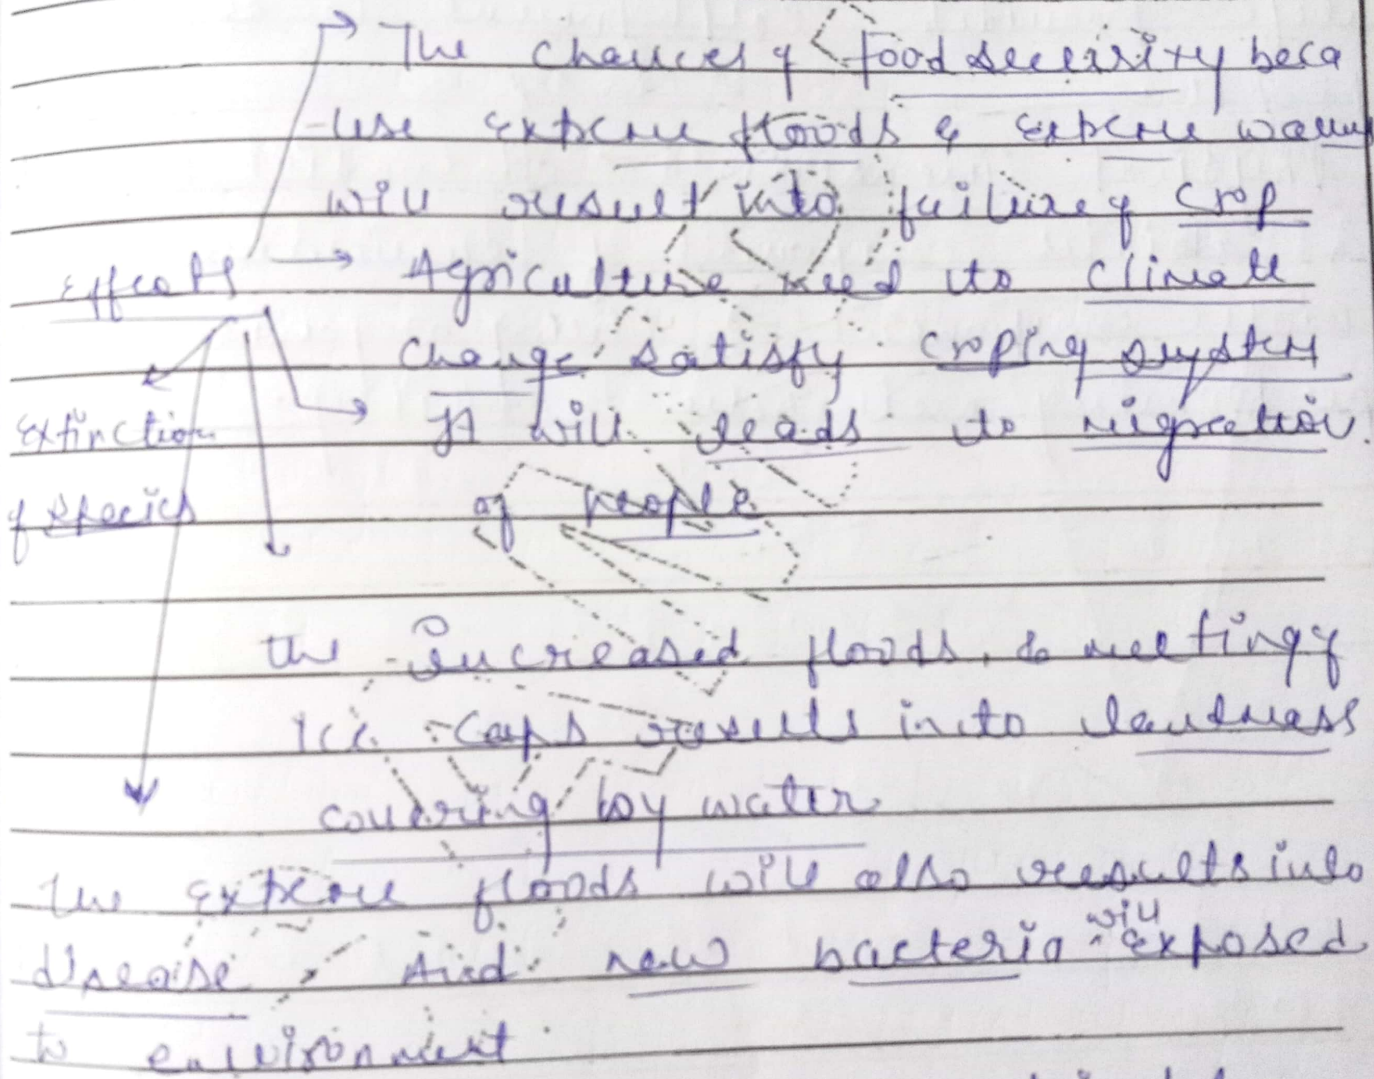 The chances of food security beca
-use extreme floods & extreme warm
will result into failure of crop
Effects
Agriculture need to climate
change satisfy croping system
It will leads to migration
of people
Extinction
of species
the increased floods, & melting of
ice caps results into landmass
covering by water
the extreme floods will also results into
disease and new bacteria will exposed
to environment